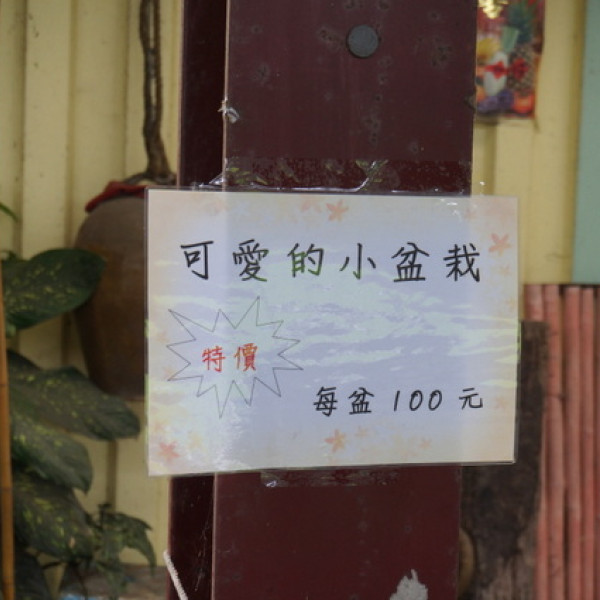 可愛的小盆栽
特價
每盆100元